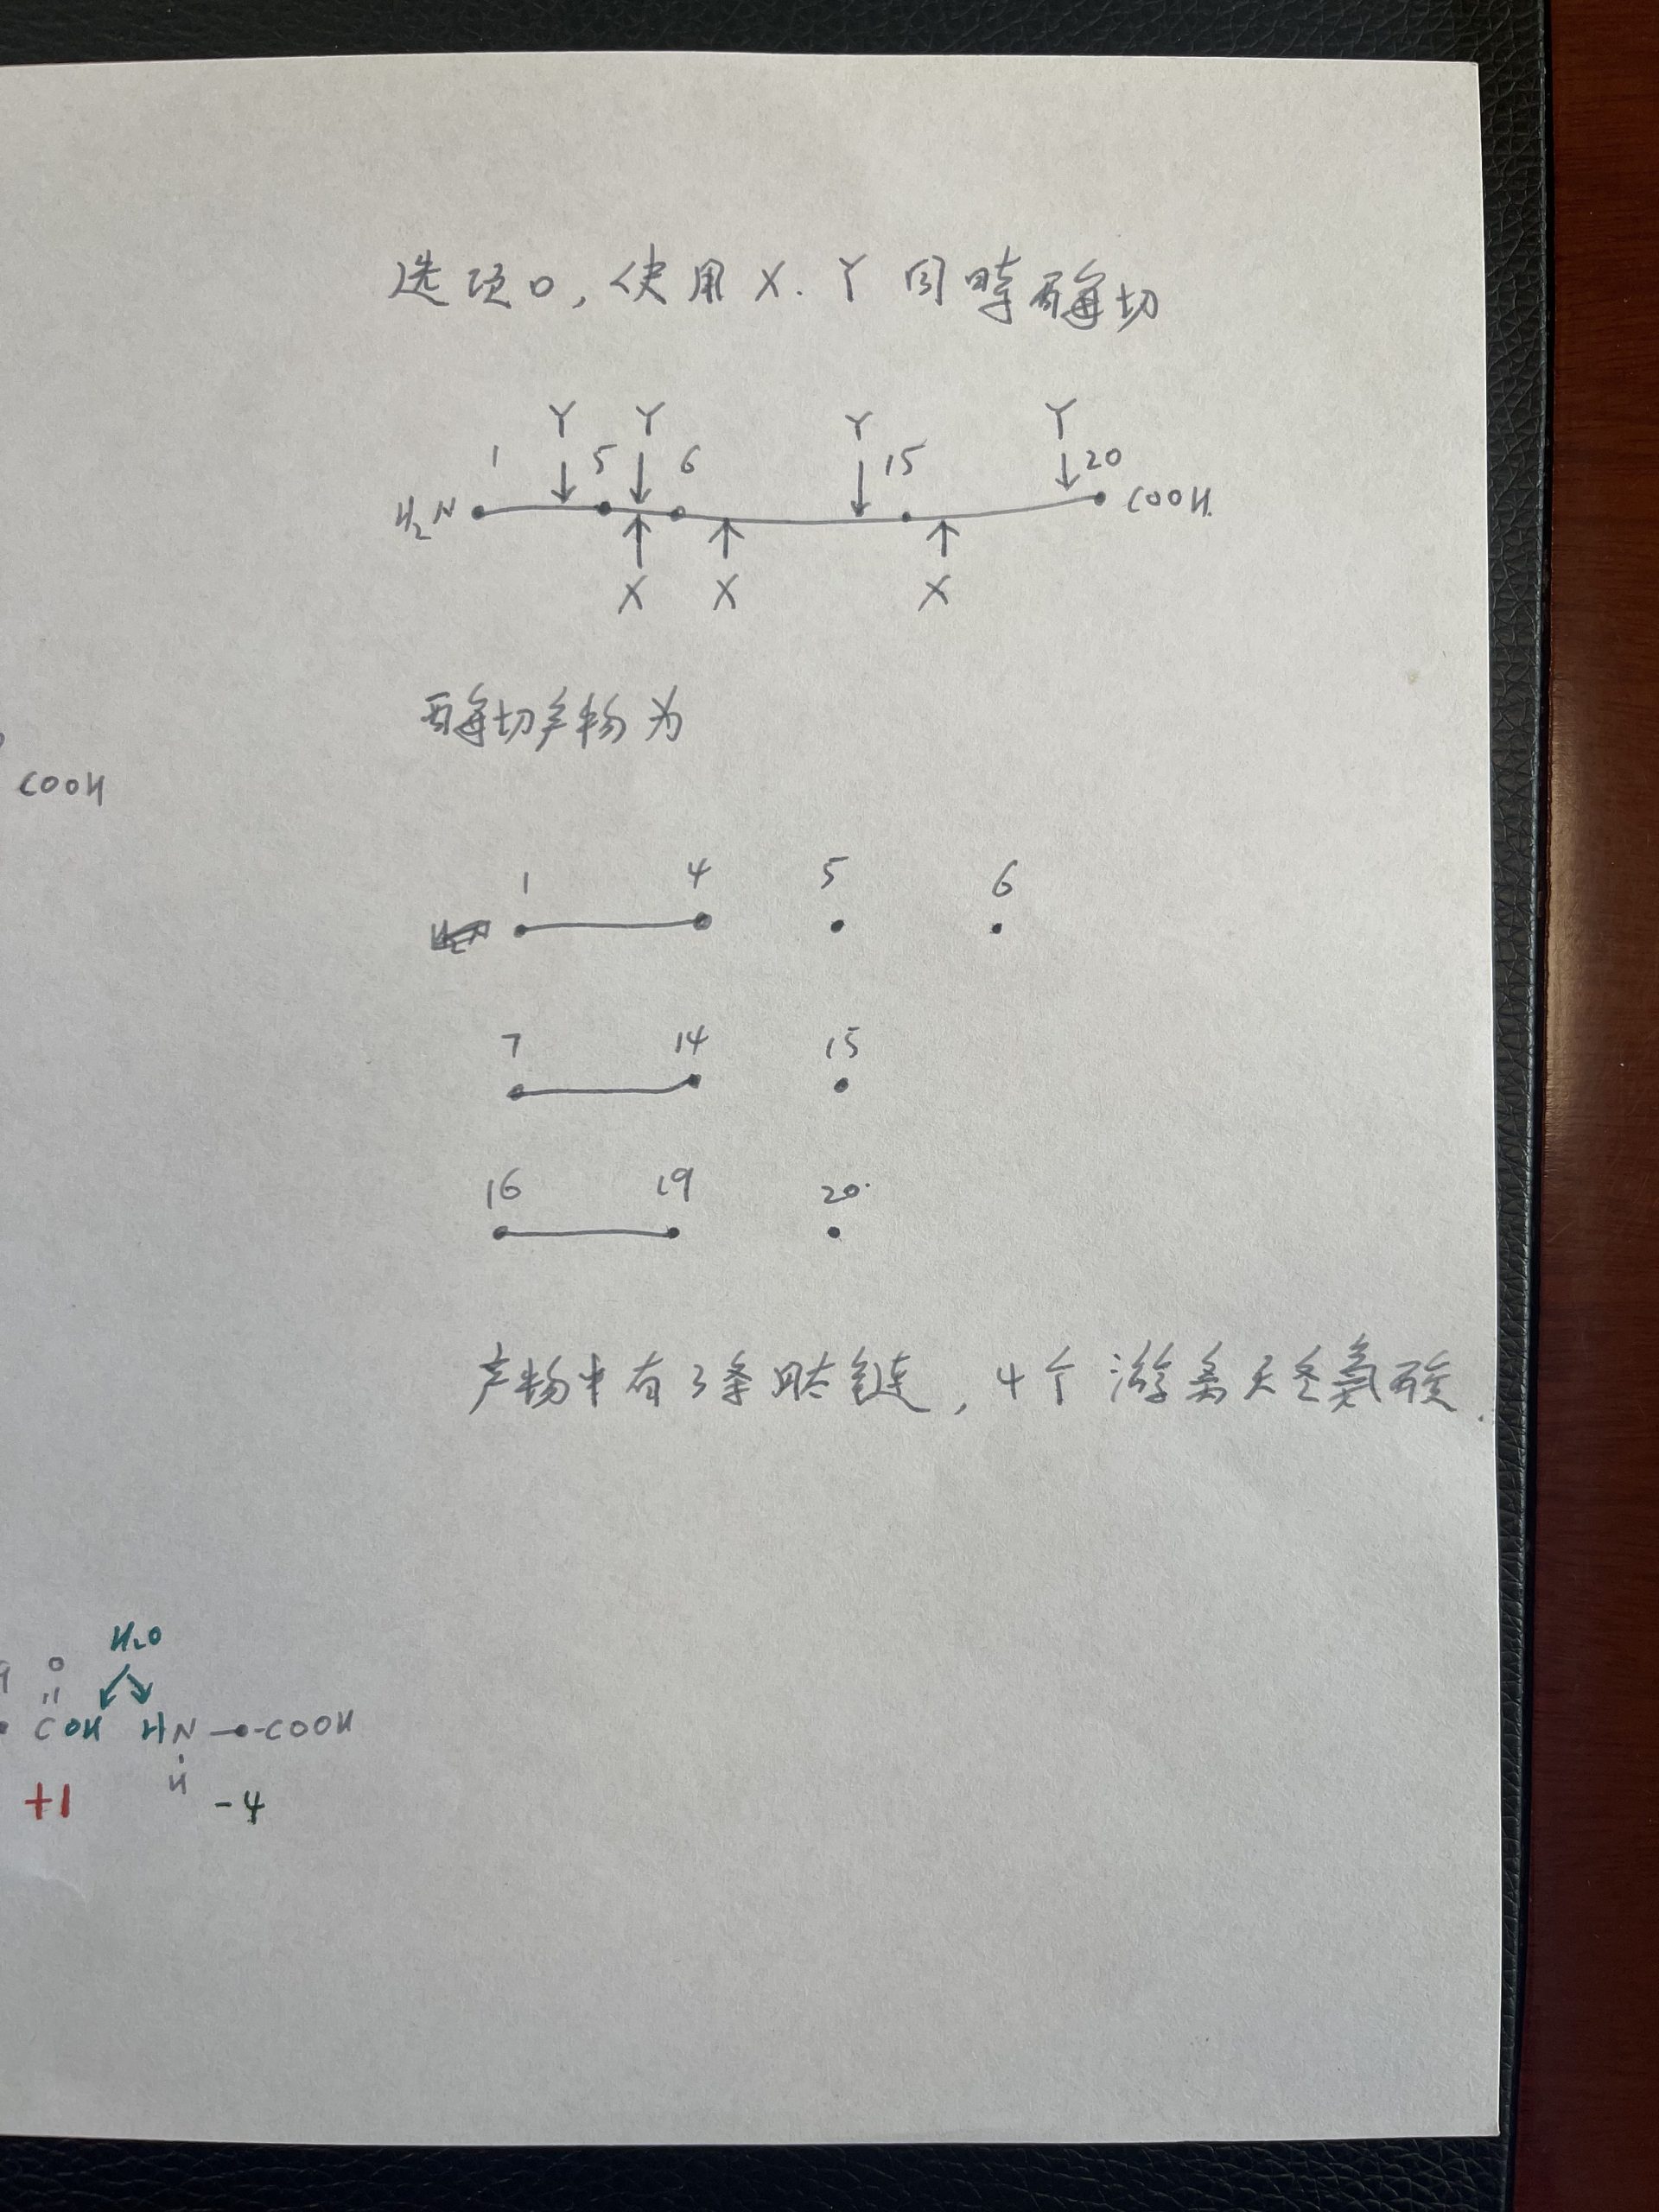 选项D,使用X.Y同时酶切
Y Y Y Y
1 5 6 15 20
H₂N COOH.
X X X
酶切产物为
COOH
1 4 5 6
7 14 15
16 19 20.
产物中有3条肽链,4个游离天冬氨酸.
H₂O
O
C OH HN —•-COOH
H
+1 -4